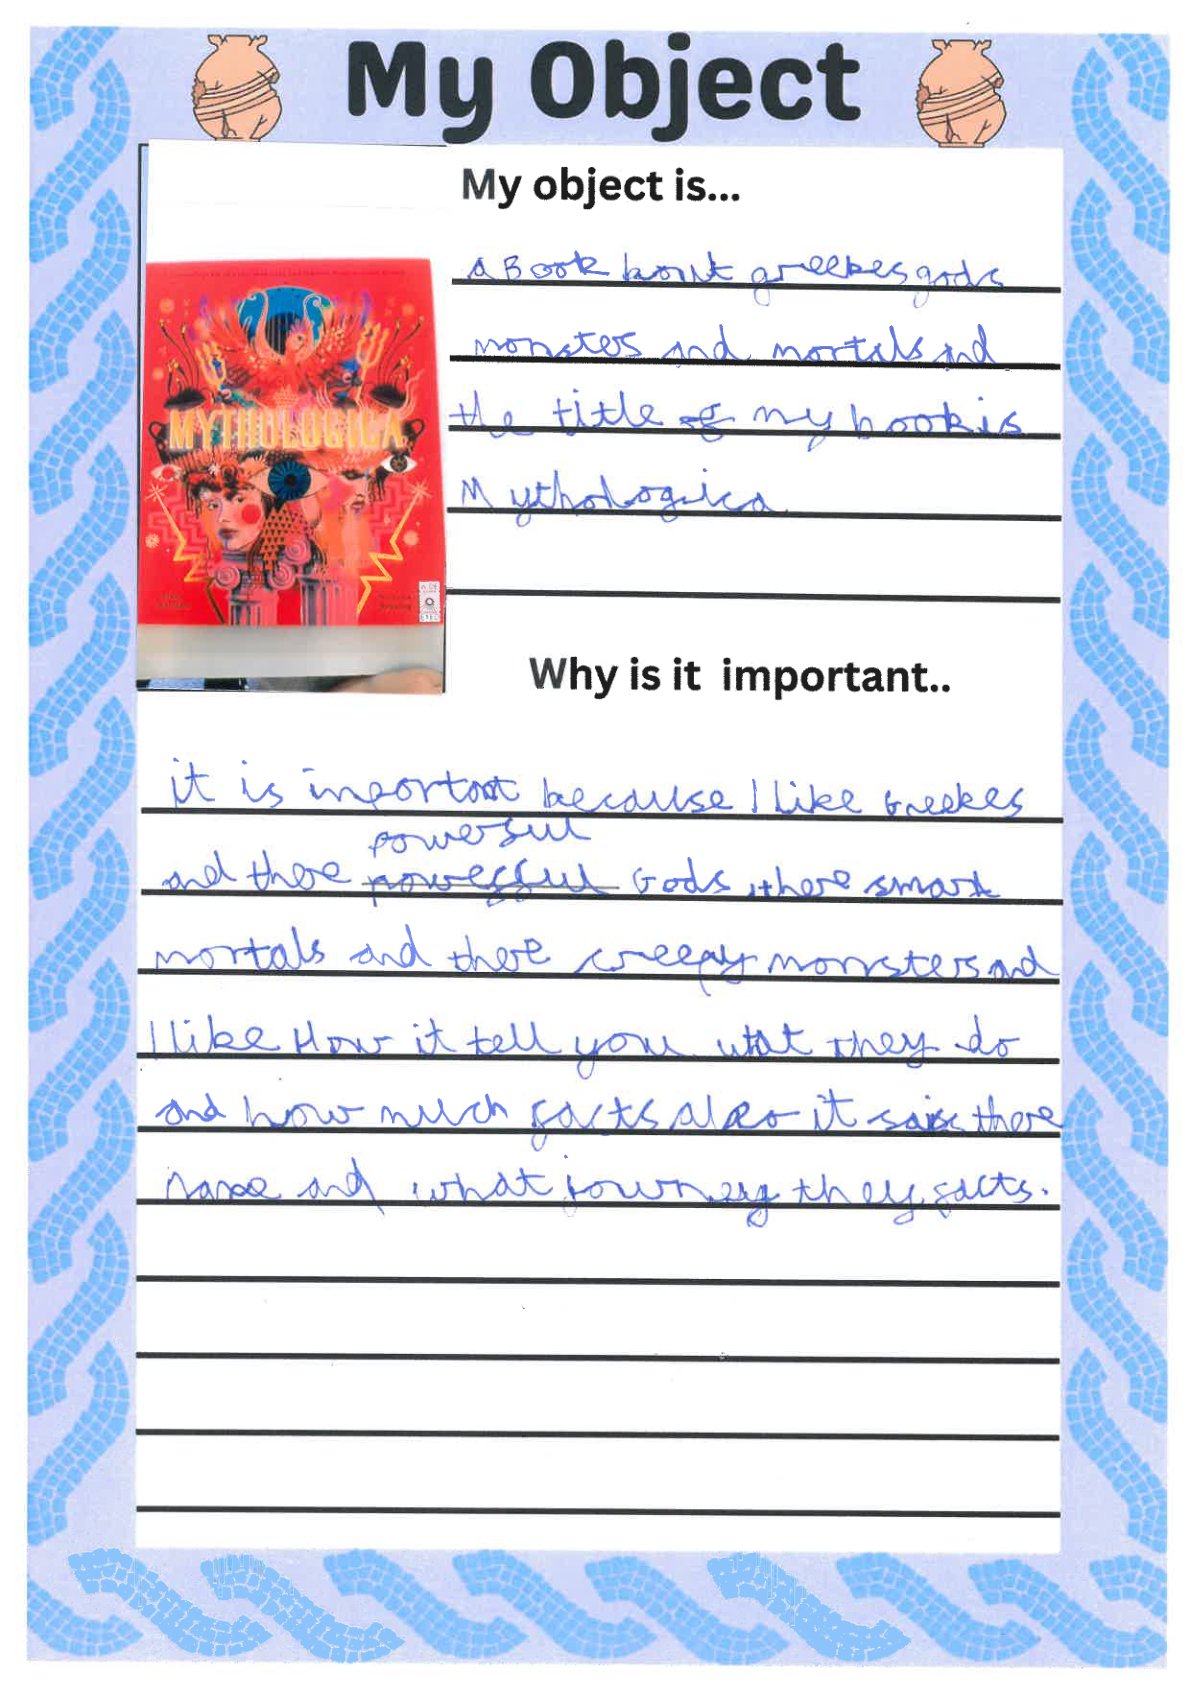 My Object
My object is...
a Book bout greekes gods
monsters and mortals and
the title of my book is
Mythologica
MYTHOLOGICA
Why is it important..
it is inportant because I like Greekes
powerful
and there powesful Gods, there smart
mortals and there creepy monsters and
I like How it tell you what they do
and how much facts also it sais there
name and what journey they facts.